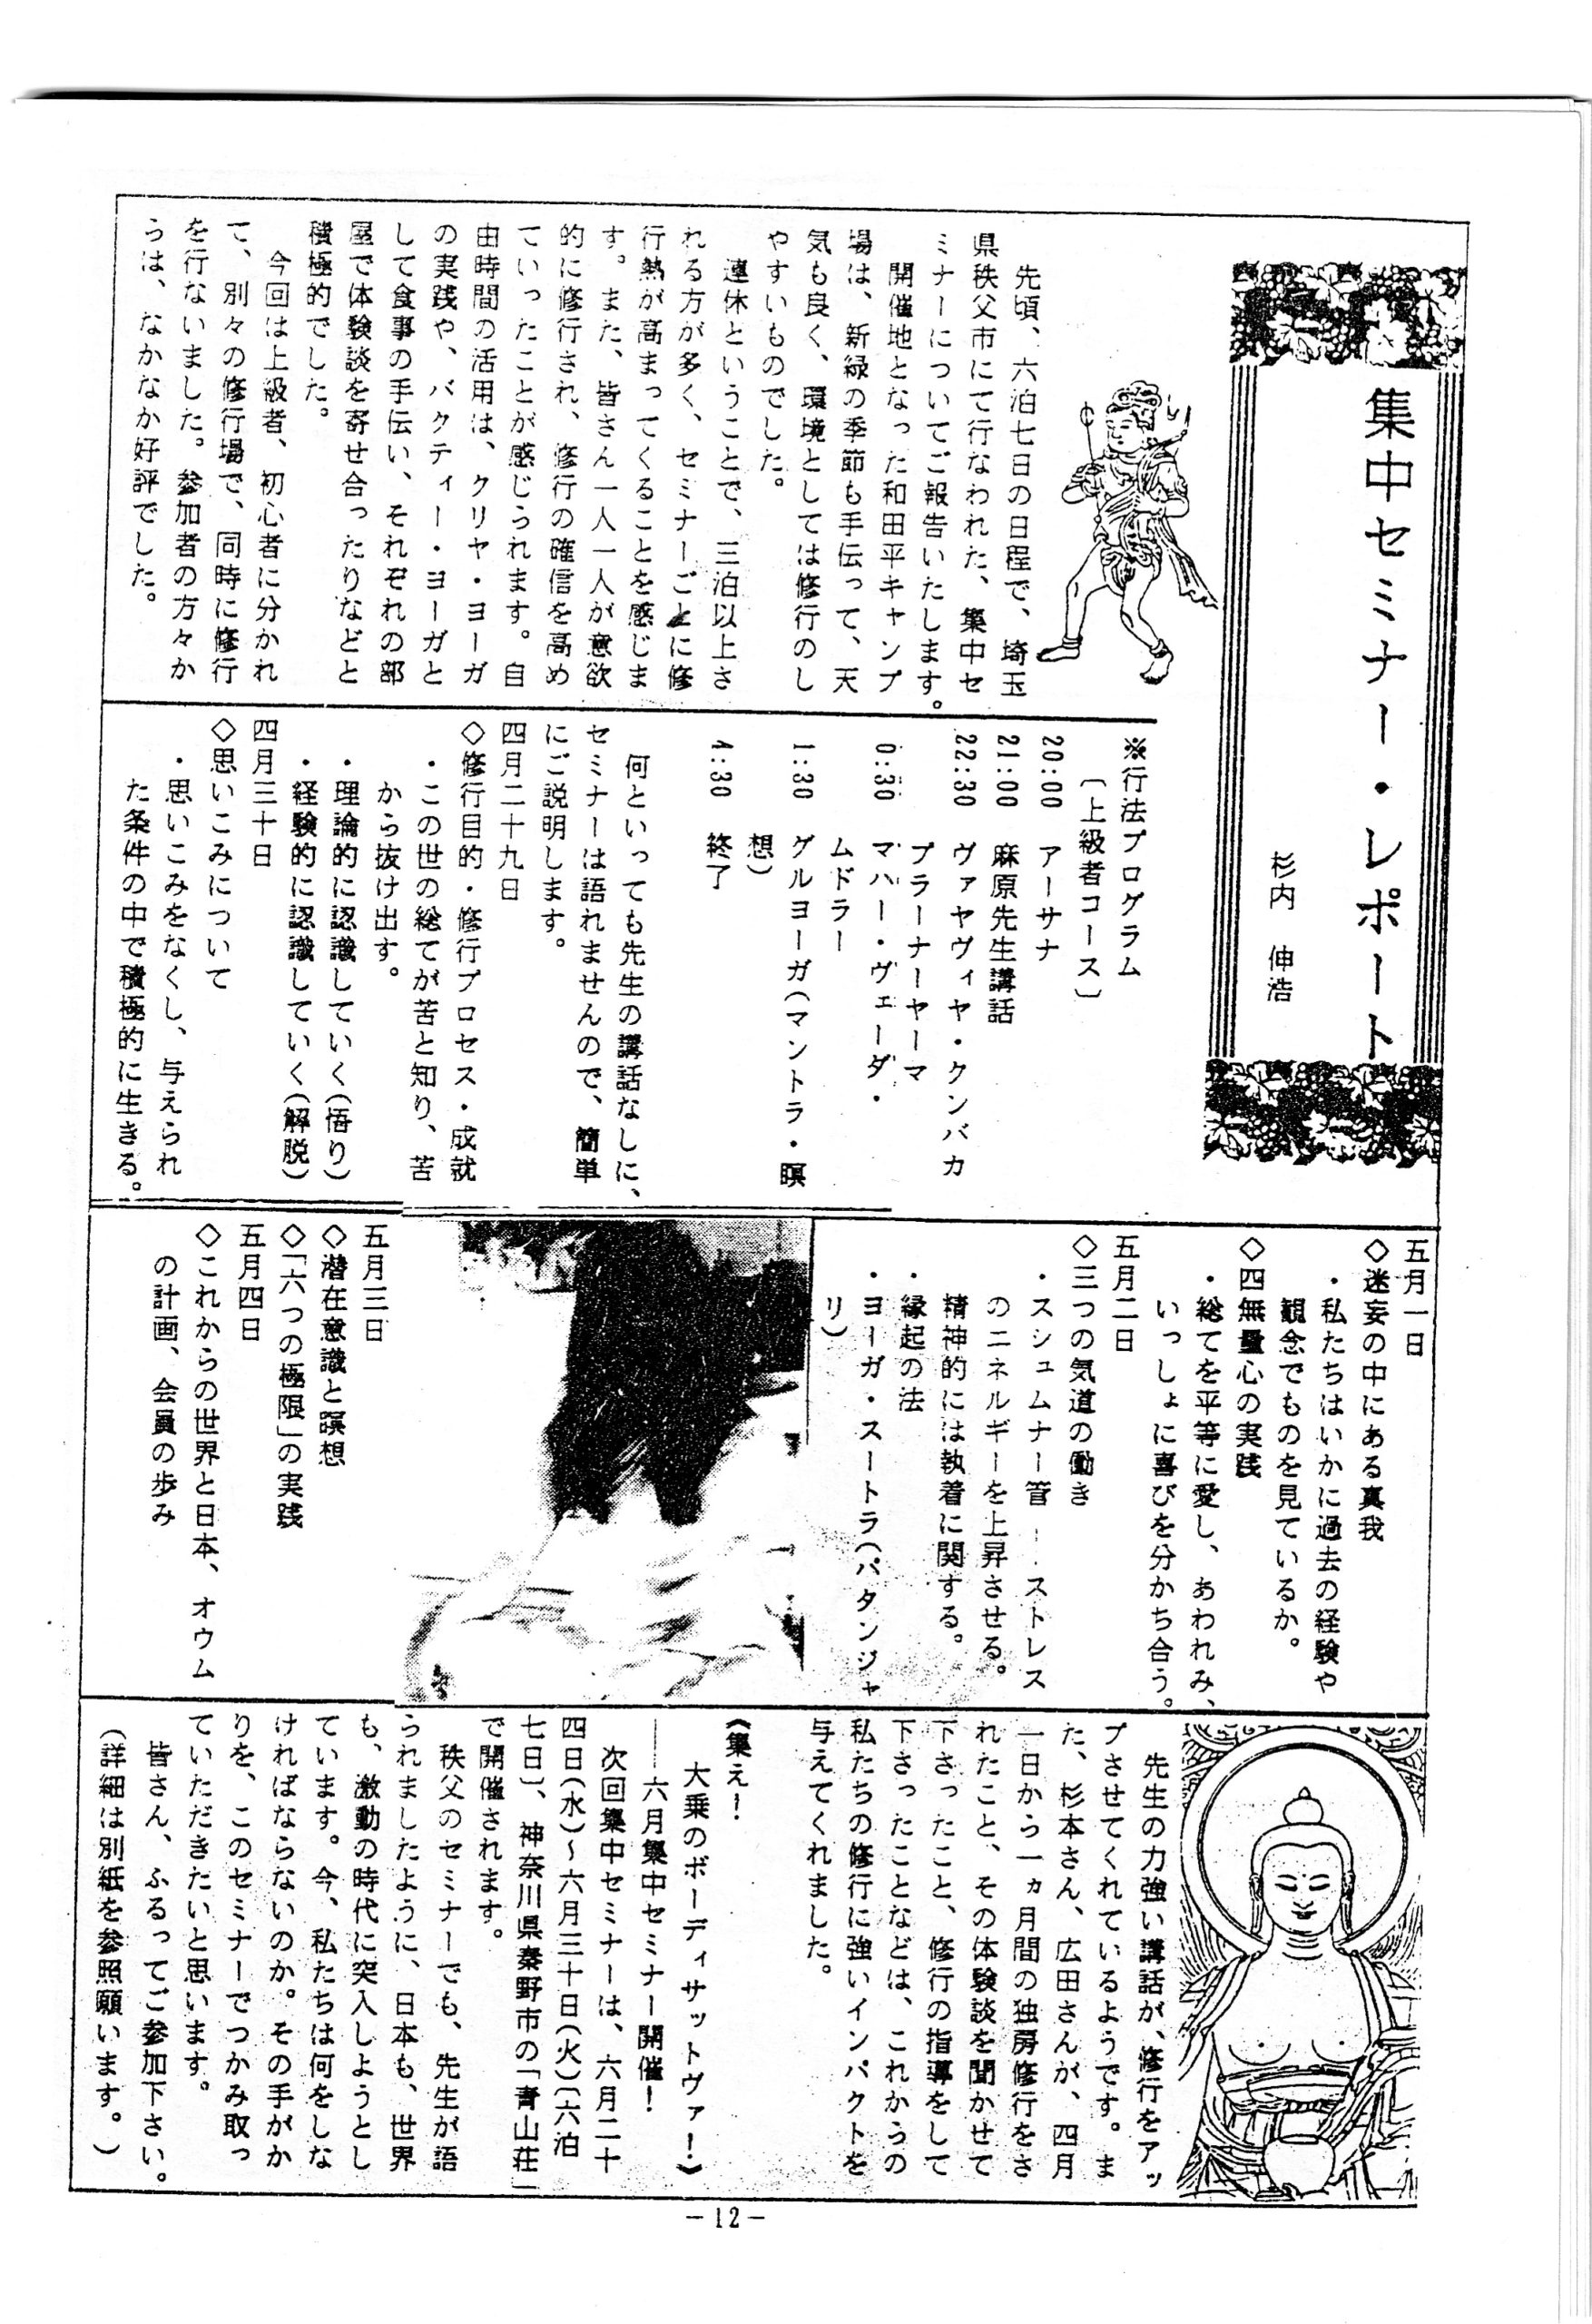 集中セミナー・レポート
杉内 伸浩
先頃、六泊七日の日程で、埼玉
県秩父市にて行なわれた、集中セ
ミナーについてご報告いたします。
開催地となった和田平キャンプ
場は、新緑の季節も手伝って、天
気も良く、環境としては修行のし
やすいものでした。
連休ということで、三泊以上さ
れる方が多く、セミナーごとに修
行熱が高まってくることを感じま
す。また、皆さん一人一人が意欲
的に修行され、修行の確信を高め
ていったことが感じられます。自
由時間の活用は、クリヤ・ヨーガ
の実践や、バクティー・ヨーガと
して食事の手伝い、それぞれの部
屋で体験談を寄せ合ったりなどと
積極的でした。
今回は上級者、初心者に分かれ
て、別々の修行場で、同時に修行
を行ないました。参加者の方々か
らは、なかなか好評でした。
※行法プログラム
〔上級者コース〕
20:00 アーサナ
21:00 麻原先生講話
22:30 ヴァヤヴィヤ・クンバカ
プラーナーヤーマ
0:30 マハー・ヴェーダ・
ムドラー
1:30 グルヨーガ(マントラ・瞑
想)
4:30 終了
何といっても先生の講話なしに、
セミナーは語れませんので、簡単
にご説明します。
四月二十九日
◇修行目的・修行プロセス・成就
・この世の総てが苦と知り、苦
から抜け出す。
・理論的に認識していく(悟り)
・経験的に認識していく(解脱)
四月三十日
◇思いこみについて
・思いこみをなくし、与えられ
た条件の中で積極的に生きる。
五月一日
◇迷妄の中にある真我
・私たちはいかに過去の経験や
観念でものを見ているか。
◇四無量心の実践
・総てを平等に愛し、あわれみ、
いっしょに喜びを分かち合う。
五月二日
◇三つの気道の働き
・スシュムナー管――ストレス
のエネルギーを上昇させる。
精神的には執着に関する。
・縁起の法
・ヨーガ・スートラ(パタンジャ
リ)
五月三日
◇潜在意識と瞑想
◇「六つの極限」の実践
五月四日
◇これからの世界と日本、オウム
の計画、会員の歩み
先生の力強い講話が、修行をアッ
プさせてくれているようです。ま
た、杉本さん、広田さんが、四月
一日から一ヵ月間の独房修行をさ
れたこと、その体験談を聞かせて
下さったこと、修行の指導をして
下さったことなどは、これからの
私たちの修行に強いインパクトを
与えてくれました。
《集え!
大乗のボーディサットヴァ!》
――六月集中セミナー開催!
次回集中セミナーは、六月二十
四日(水)～六月三十日(火)〔六泊
七日〕、神奈川県秦野市の「青山荘」
で開催されます。
秩父のセミナーでも、先生が語
られましたように、日本も、世界
も、激動の時代に突入しようとし
ています。今、私たちは何をしな
ければならないのか。その手がか
りを、このセミナーでつかみ取っ
ていただきたいと思います。
皆さん、ふるってご参加下さい。
(詳細は別紙を参照願います。)
－12－